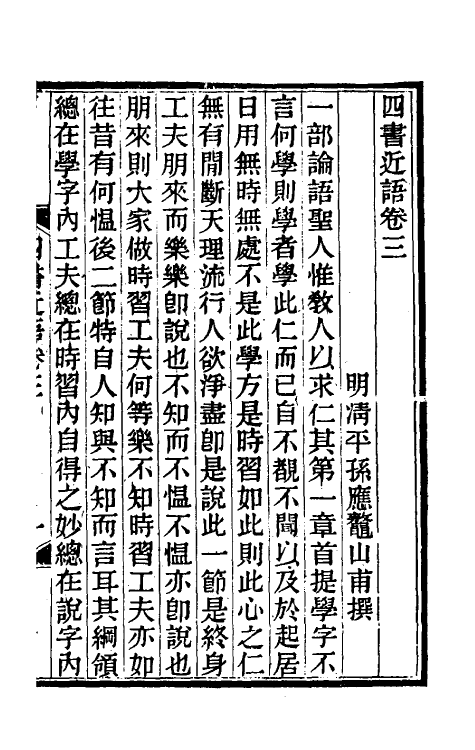 四書近語卷三
明淸平孫應鼇山甫撰
一部論語聖人惟敎人以求仁其第一章首提學字不
言何學則學者學此仁而已自不覩不聞以及於起居
日用無時無處不是此學方是時習如此則此心之仁
無有閒斷天理流行人欲淨盡卽是說此一節是終身
工夫朋來而樂樂卽說也不知而不慍不慍亦卽說也
朋來則大家做時習工夫何等樂不知時習工夫亦如
往昔有何慍後二節特自人知與不知而言耳其綱領
總在學字內工夫總在時習內自得之妙總在說字內